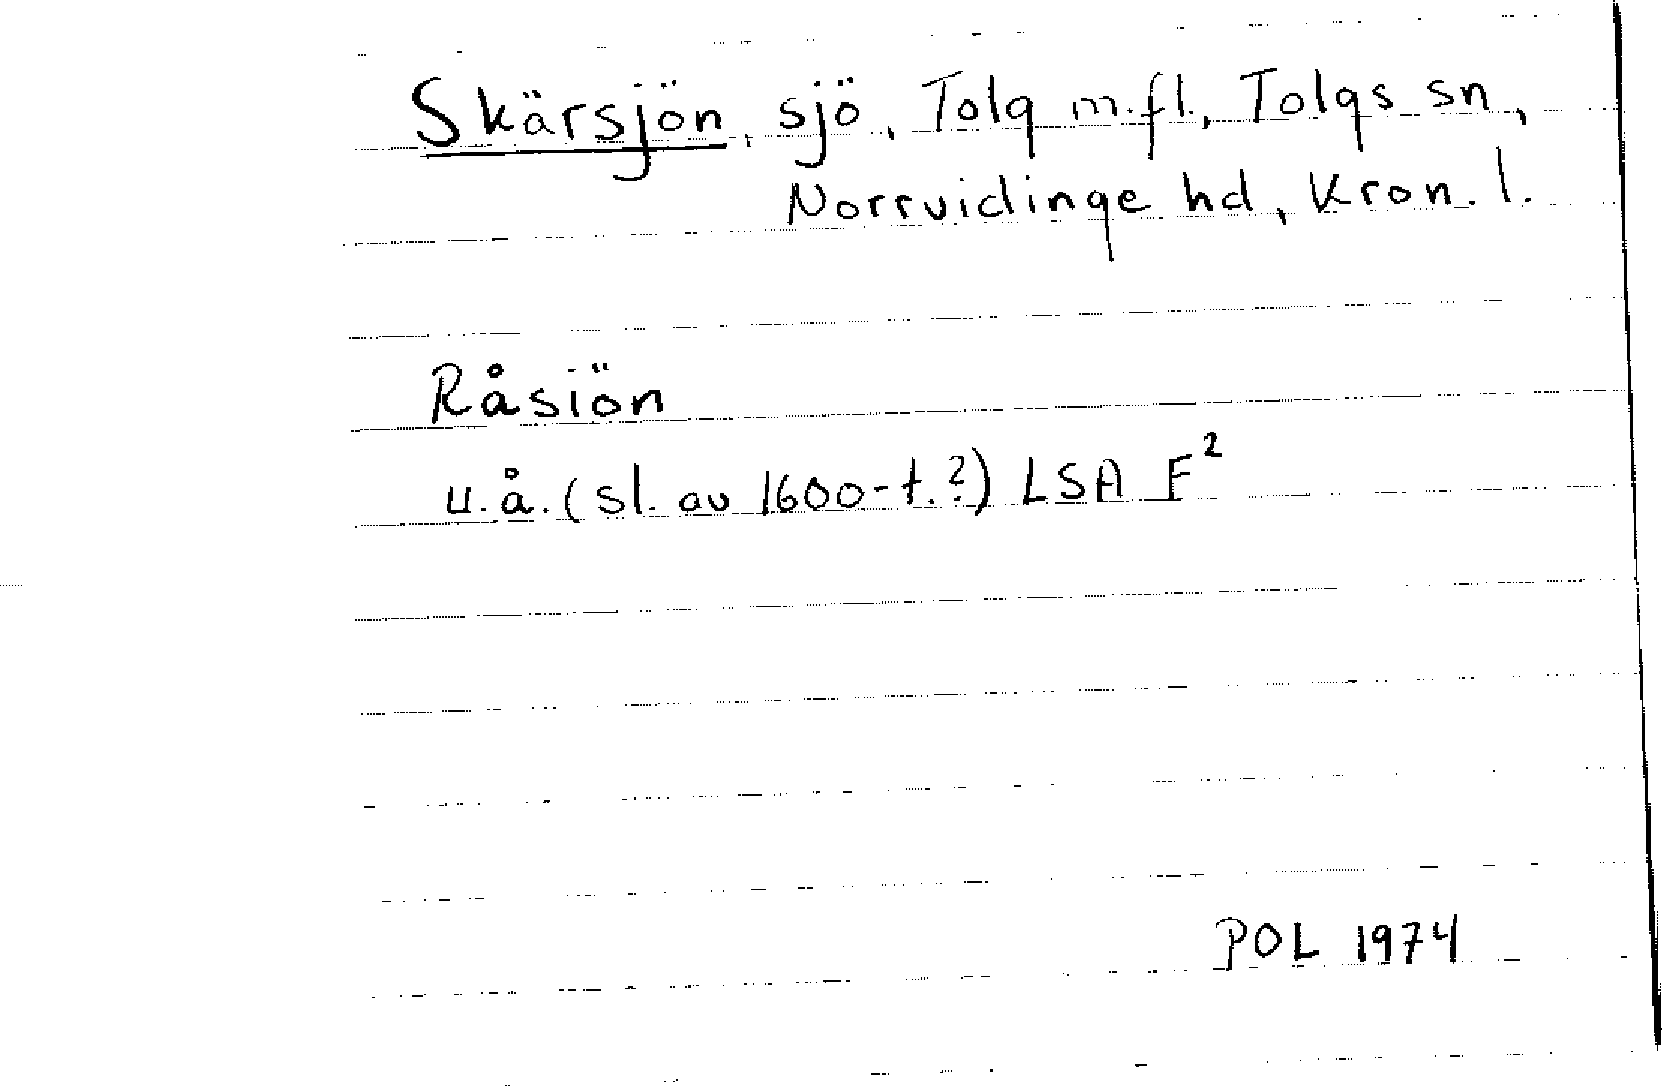 Skärsjön, sjö, Tolg m.fl., Tolgs sn,
Norrvidinge hd, Kron. l.
Råsiön
u.å. (sl. av 1600-t.?) LSA F²
POL 1974